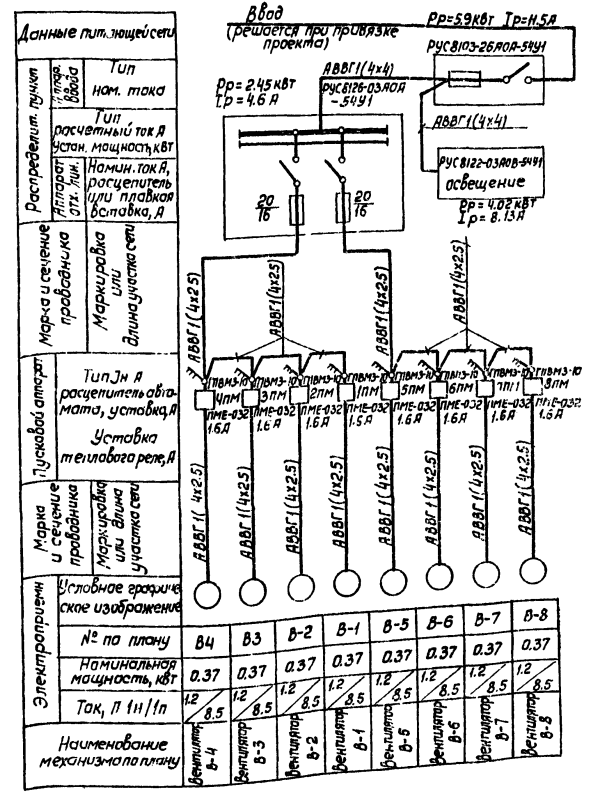 Данные питающей сети
Ввод
(решается при привязке
проекта)
Рр=5.9кВт Iр=11.5А
РУС8103-26А0А-54У1
АВВГ1(4х4)
Рр=2.45кВт
Iр=4.6А
РУС8126-03А0А
-54У1
АВВГ1(4х4)
РУС8122-03А0В-54У1
освещение
Рр=4.02кВт
Iр=8.13А
20
16
20
16
Распределит. пункт
Аппар. ввода
Тип
ном. тока
Тип
расчетный ток А
Устан. мощность, кВт
Аппарат отх. лин.
Номин. ток А,
расцепитель
или плавкая
вставка, А
Марка и сечение
проводника
Маркировка
или
длина участка сети
АВВГ1(4х2.5)
АВВГ1(4х2.5)
АВВГ1(4х2.5)
АВВГ1(4х2.5)
Пусковой аппарат
Тип Iн А
расцепитель авто-
мата, уставка, А
Уставка
теплового реле, А
ГПВМЗ-10 ГПВМЗ-10 ГПВМЗ-10 ГПВМЗ-10 ГПВМЗ-10 ГПВМЗ-10 ГПВМЗ-10
4ПМ 3ПМ 2ПМ 1ПМ 5ПМ 6ПМ 7ПМ 8ПМ
ПМЕ-032 ПМЕ-032 ПМЕ-032 ПМЕ-032 ПМЕ-032 ПМЕ-032 ПМЕ-032 ПМЕ-032
1.6А 1.6А 1.6А 1.6А 1.6А 1.6А 1.6А 1.6А
Марка
и сечение
проводника
Маркировка
или длина
участка сети
АВВГ1(4х2.5) АВВГ1(4х2.5) АВВГ1(4х2.5) АВВГ1(4х2.5) АВВГ1(4х2.5) АВВГ1(4х2.5) АВВГ1(4х2.5) АВВГ1(4х2.5)
Электроприемн
Условное графиче-
ское изображение
№ по плану В4 В3 В-2 В-1 В-5 В-6 В-7 В-8
Номинальная
мощность, кВт 0.37 0.37 0.37 0.37 0.37 0.37 0.37 0.37
Ток, П 1н/1п 1.2/8.5 1.2/8.5 1.2/8.5 1.2/8.5 1.2/8.5 1.2/8.5 1.2/8.5 1.2/8.5
Наименование
механизма по плану
Вентилятор В-4
Вентилятор В-3
Вентилятор В-2
Вентилятор В-1
Вентилятор В-5
Вентилятор В-6
Вентилятор В-7
Вентилятор В-8